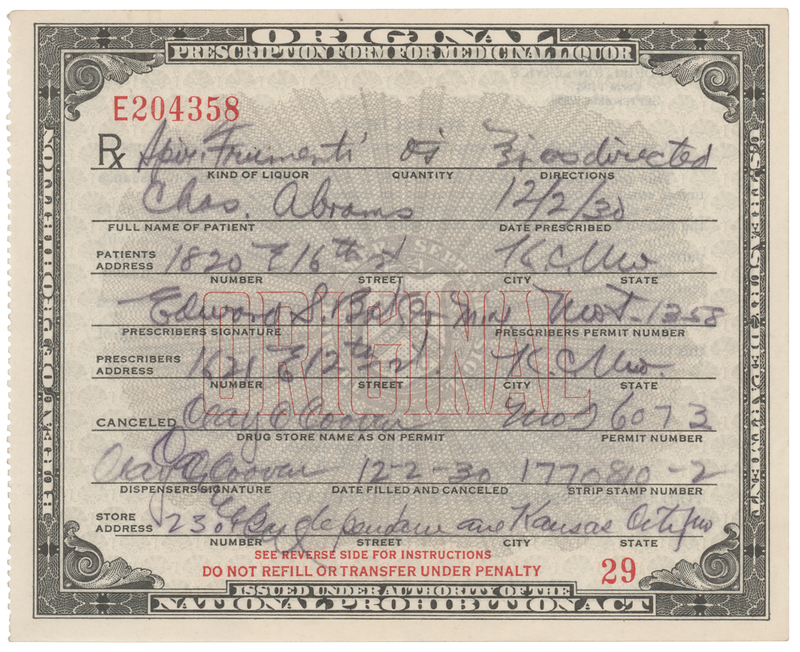 ORIGINAL
PRESCRIPTION FORM FOR MEDICINAL LIQUOR
E204358
Rx Spir. Frumenti as directed
KIND OF LIQUOR QUANTITY DIRECTIONS
Chas. Abrams 12/2/30
FULL NAME OF PATIENT DATE PRESCRIBED
PATIENTS ADDRESS 1820 E 16th St K.C. Mo
NUMBER STREET CITY STATE
Edward S. Mo S-1358
PRESCRIBERS SIGNATURE PRESCRIBERS PERMIT NUMBER
PRESCRIBERS ADDRESS 1621 E 12th St. K.C. Mo.
NUMBER STREET CITY STATE
CANCELED Mo S 6073
DRUG STORE NAME AS ON PERMIT PERMIT NUMBER
12-2-30 1770810-2
DISPENSERS SIGNATURE DATE FILLED AND CANCELED STRIP STAMP NUMBER
STORE ADDRESS 2304 ave Kansas City Mo
NUMBER STREET CITY STATE
SEE REVERSE SIDE FOR INSTRUCTIONS
DO NOT REFILL OR TRANSFER UNDER PENALTY 29
ISSUED UNDER AUTHORITY OF THE
NATIONAL PROHIBITION ACT
BUREAU OF PROHIBITION
ORIGINAL